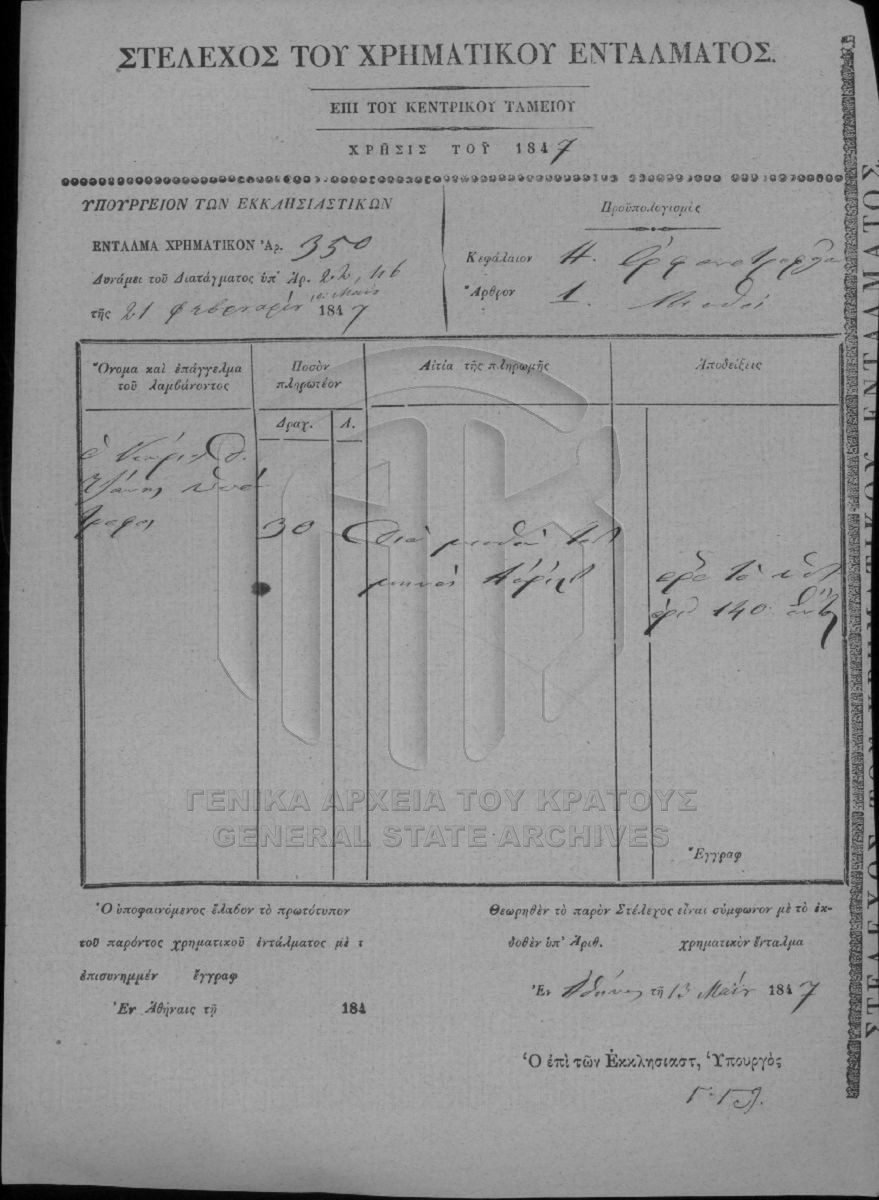 ΣΤΕΛΕΧΟΣ ΤΟΥ ΧΡΗΜΑΤΙΚΟΥ ΕΝΤΑΛΜΑΤΟΣ.
ΕΠΙ ΤΟΥ ΚΕΝΤΡΙΚΟΥ ΤΑΜΕΙΟΥ
ΧΡΗΣΙΣ ΤΟΥ 1847
ΥΠΟΥΡΓΕΙΟΝ ΤΩΝ ΕΚΚΛΗΣΙΑΣΤΙΚΩΝ
ΕΝΤΑΛΜΑ ΧΡΗΜΑΤΙΚΟΝ Ἀρ. 350
Δυνάμει τοῦ Διατάγματος ὑπ' Ἀρ. 22, 46
τῆς 21 Φεβρουαρίου 1847
Προϋπολογισμὸς
Κεφάλαιον Η.
Ἄρθρον 1. Μισθοὶ
Ὄνομα καὶ ἐπάγγελμα
τοῦ λαμβάνοντος
Ποσὸν
πληρωτέον
Δραχ. Λ.
Αἰτία τῆς πληρωμῆς
Ἀποδείξεις
30 Διὰ μισθὸν τοῦ
μηνὸς
ἀρθ 140
Ἔγγραφ
Ὁ ὑποφαινόμενος ἔλαβον τὸ πρωτότυπον
τοῦ παρόντος χρηματικοῦ ἐντάλματος μὲ τ
ἐπισυνημμέν ἔγγραφ
Ἐν Ἀθήναις τῇ 184
Θεωρηθὲν τὸ παρὸν Στέλεχος εἶναι σύμφωνον μὲ τὸ ἐκ-
δοθὲν ὑπ' Ἀριθ. χρηματικὸν ἔνταλμα
Ἐν Ἀθήναις τῇ 13 Μαΐου 1847
Ὁ ἐπὶ τῶν Ἐκκλησιαστ, Ὑπουργὸς
ΓΕΝΙΚΑ ΑΡΧΕΙΑ ΤΟΥ ΚΡΑΤΟΥΣ
GENERAL STATE ARCHIVES